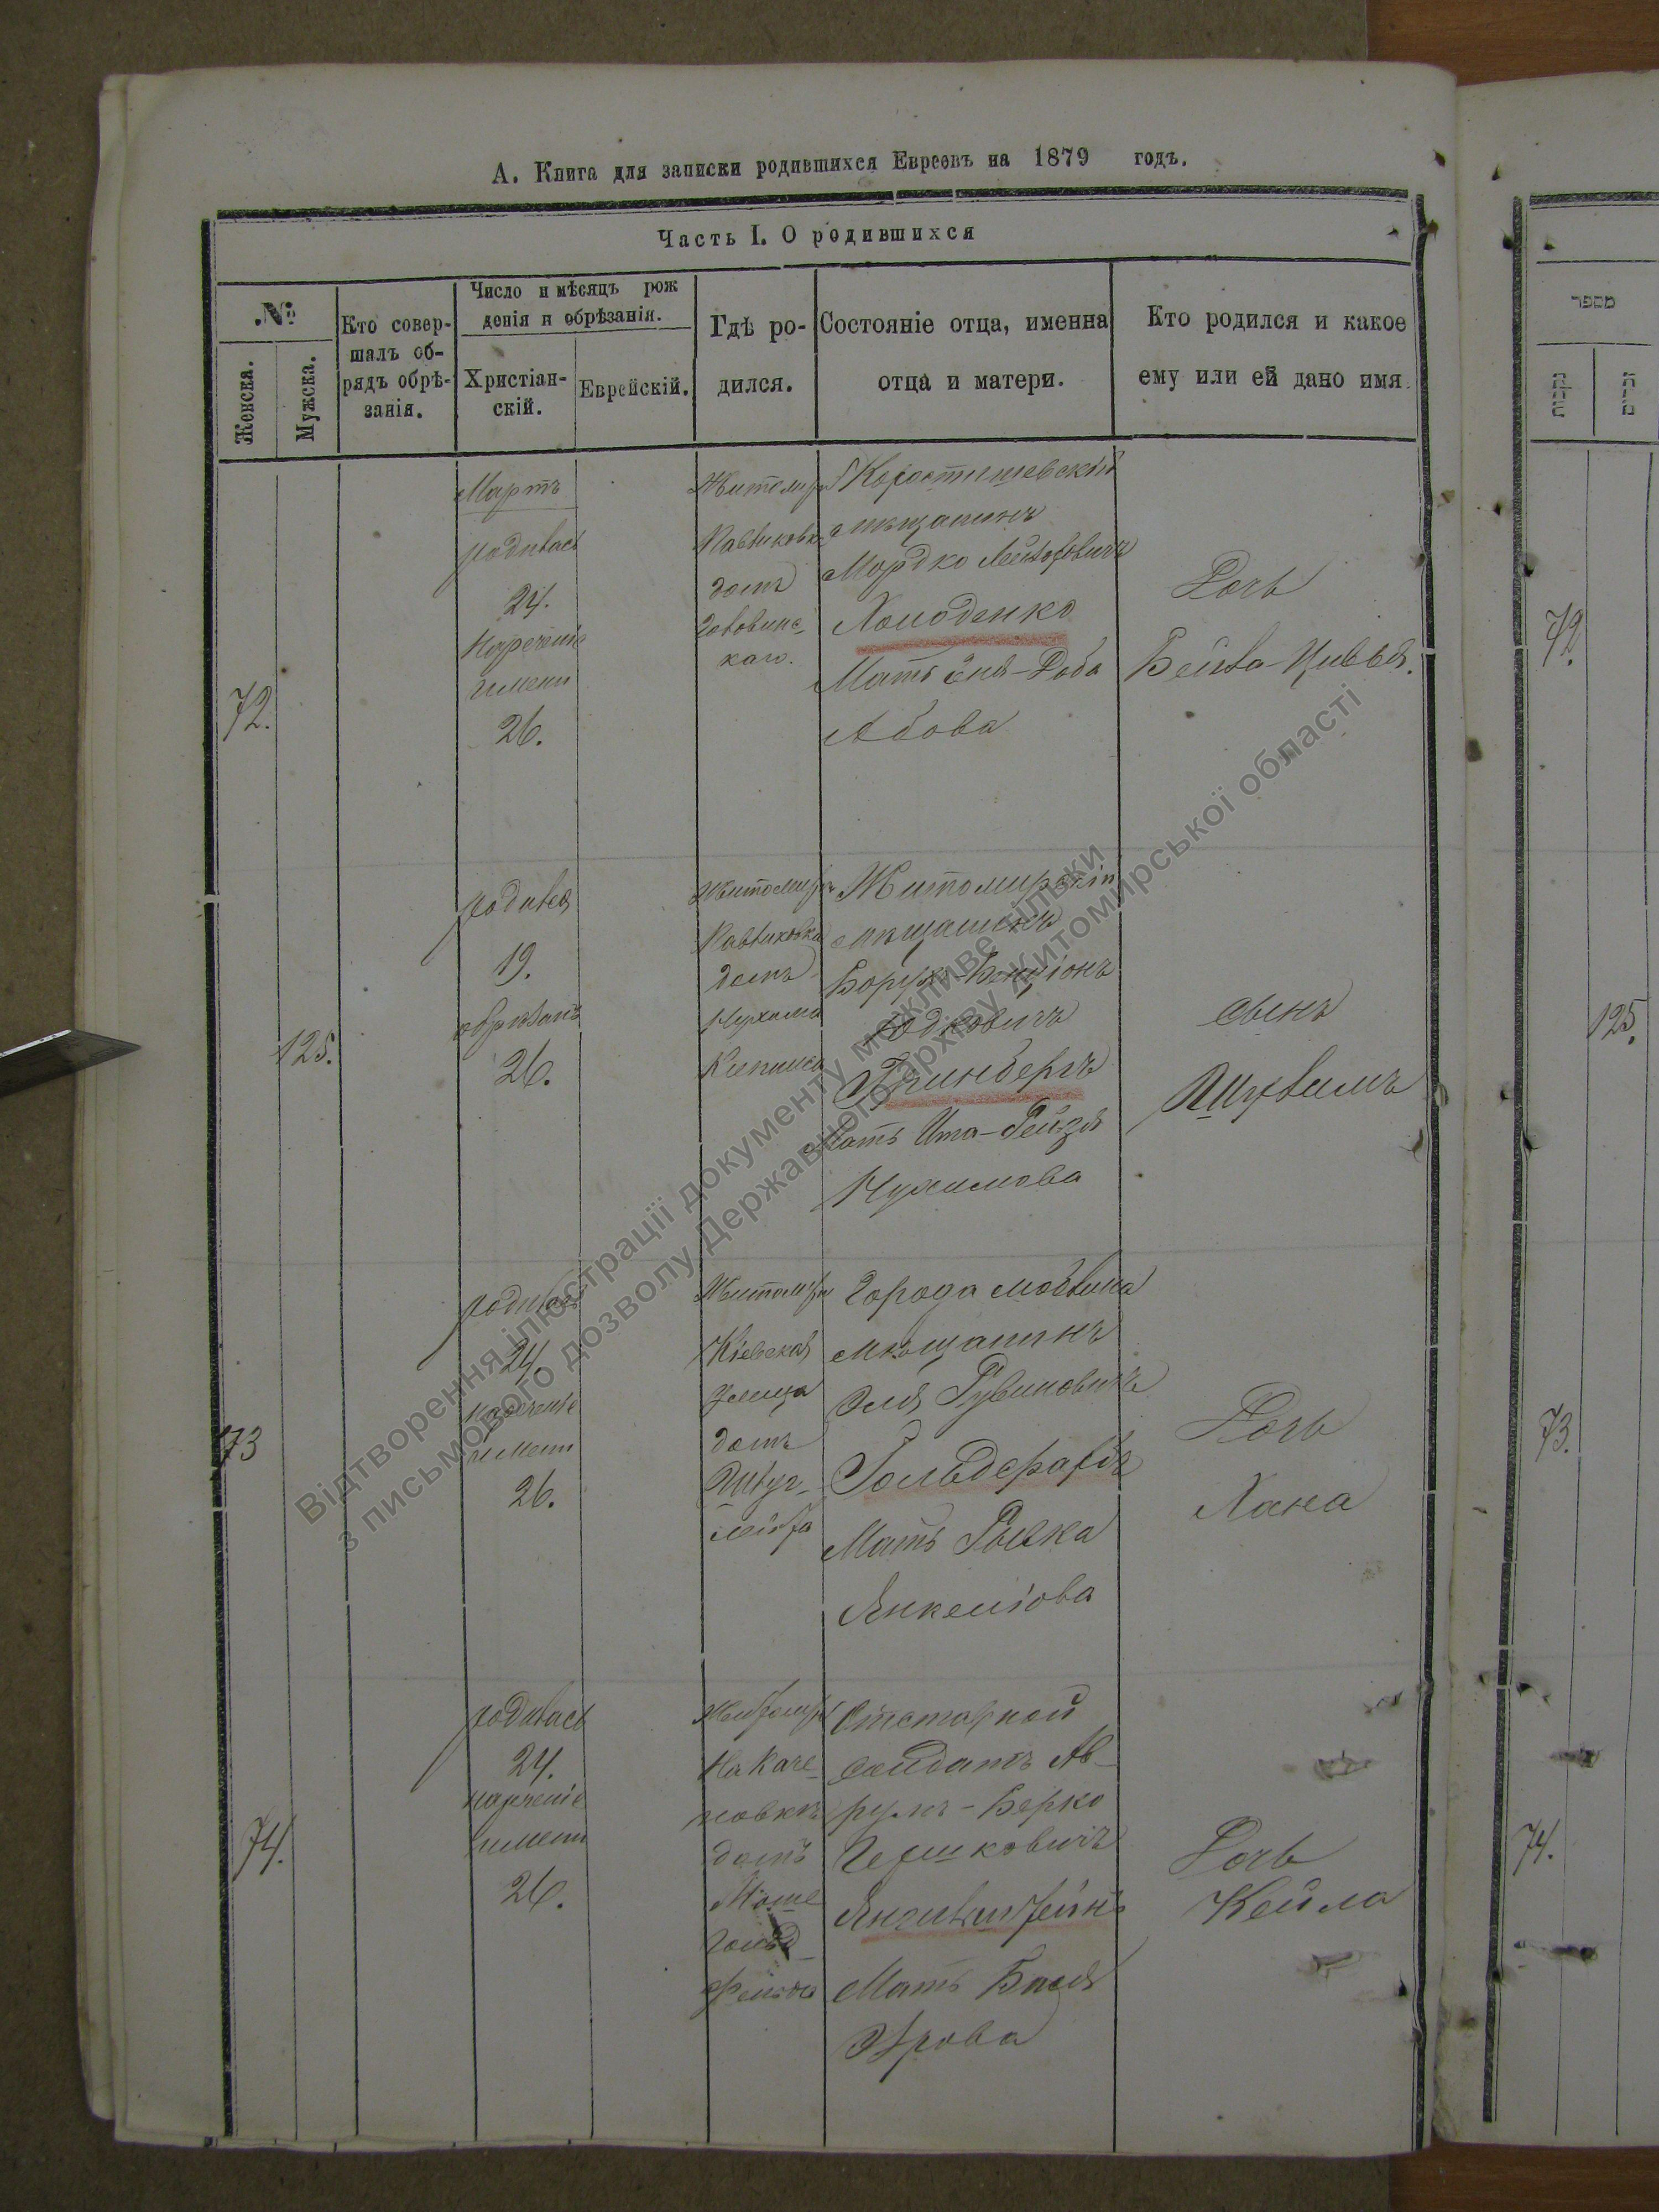 А. Книга для записки родившихся Евреевъ на 1879 годъ.
Часть I. О родившихся
№
Женска.
Мужска.
Кто совер-
шалъ об-
рядъ обрѣ-
занія.
Число и мѣсяцъ рож
денія и обрѣзанія.
Христіан-
скій.
Еврейскій.
Гдѣ ро-
дился.
Состояніе отца, именна
отца и матери.
Кто родился и какое
ему или ей дано имя.
72.
Мартъ
родилась
24.
Нареченіе
имени
26.
Житомиръ
домъ
каго.
Коростишевскій
мѣщанинъ
Мордко Лейзоровичъ
Холоденко
Мать Эня-Доба
Абова
Дочь
Бейла-Цивья.
125.
родился
19.
обрѣзанъ
26.
Житомиръ
домъ
Нухима
Житомирскій
мѣщанинъ
Борухъ-Бенціонъ
Юдковичъ
Гринбергъ
Мать Ита-Рейзя
Нухимова
Сынъ
73
родилась
24.
нареченіе
имени
26.
Житомиръ
Кіевская
улица
домъ
Города
мѣщанинъ
Эля Рувиновичъ
Гольдфарбъ
Мать Рывка
Янкеліова
Дочь
Хана
74.
родилась
24.
нареченіе
имени
26.
Житомиръ
На Каче-
новкѣ
домъ
Моше
Гольд-
Отставной
солдатъ Ав-
румъ-Берко
Гершковичъ
Мать Бася
Дочь
Кейла
מספר
נקבות
זכרים
72.
125.
73.
74.
Відтворення ілюстрації документу можливе тільки
з письмового дозволу Державного архіву Житомирської області